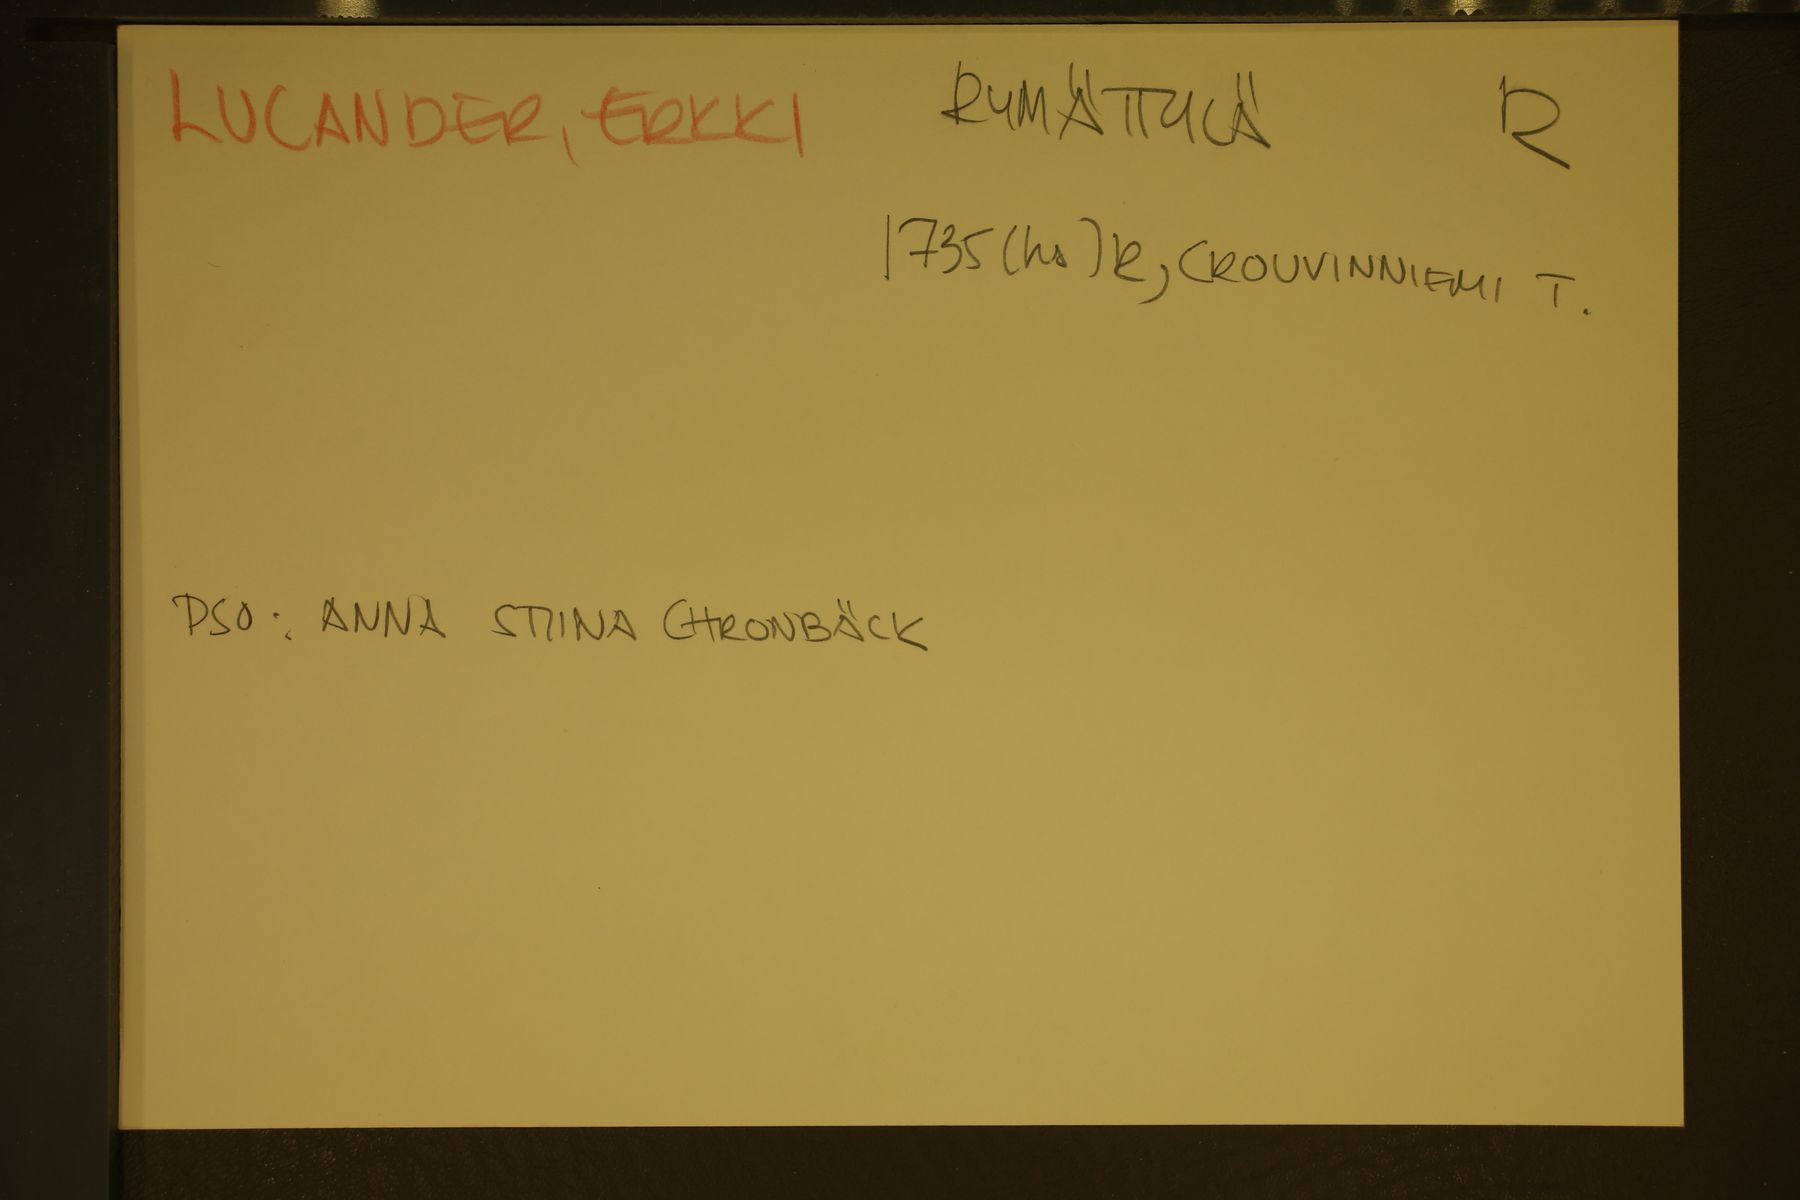 LUCANDER, ERKKI RYMÄTTYLÄ R
1735 (hs) R, CROUVINNIEMI T.
PSO: ANNA STIINA CHRONBÄCK